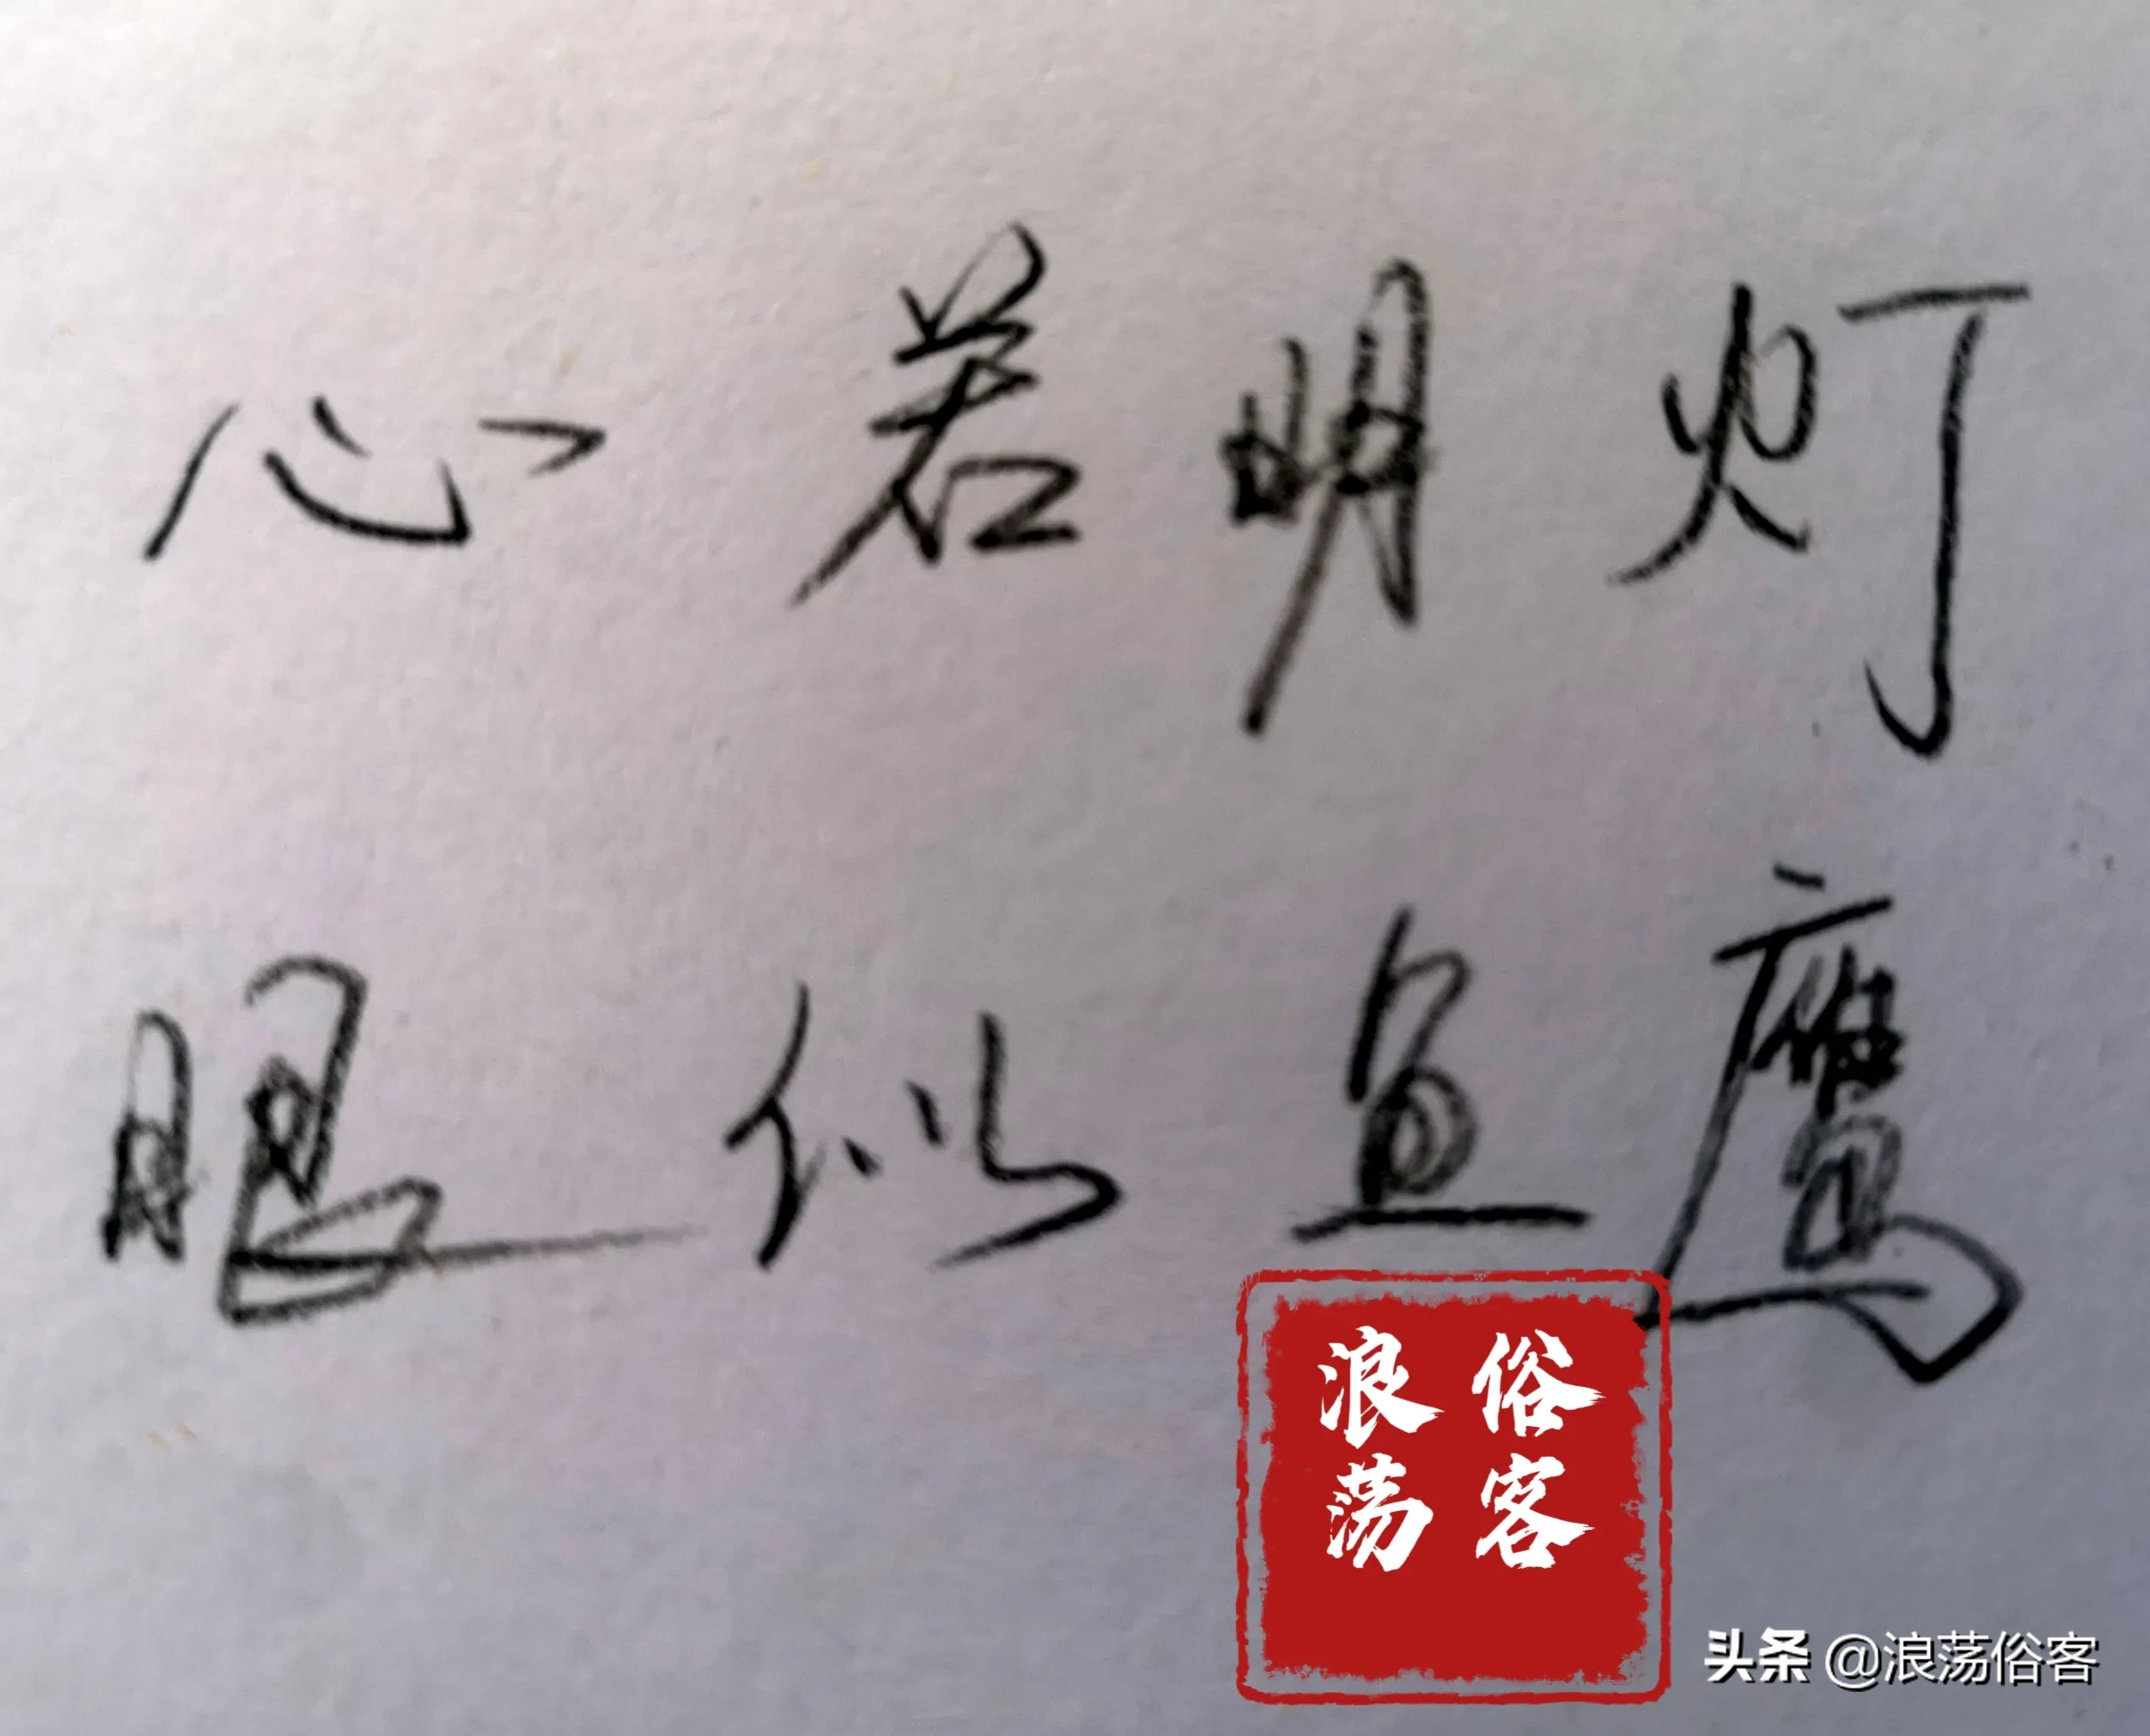 心若明灯
眼似鱼鹰
浪荡
俗客
头条 @浪荡俗客